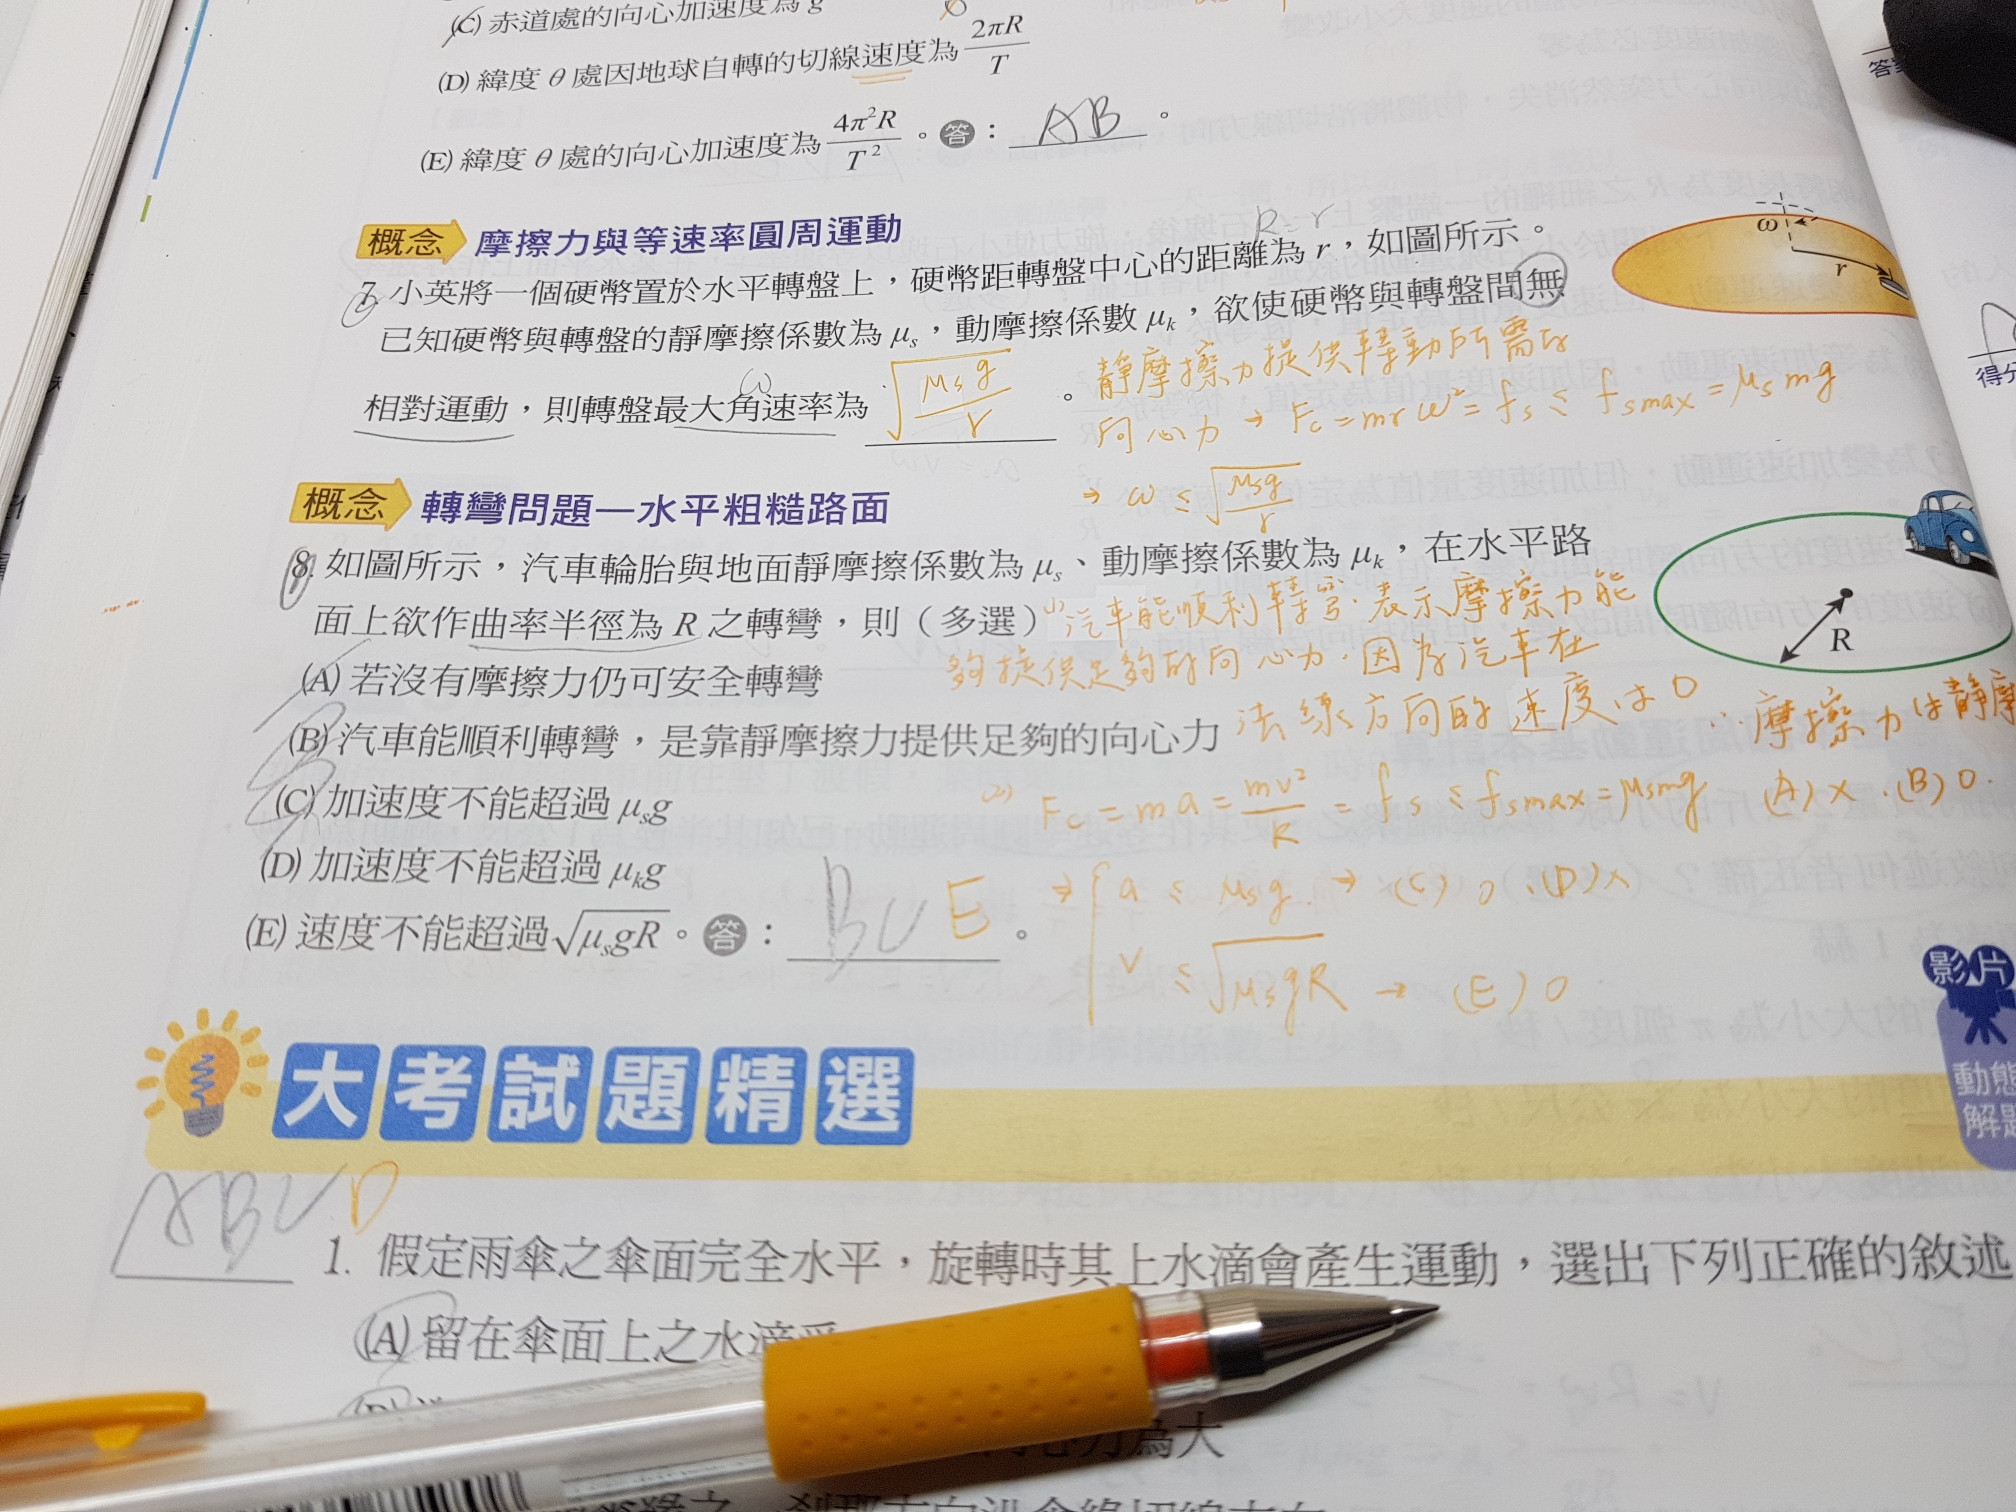 (C) 赤道處的向心加速度為 g
(D) 緯度 θ 處因地球自轉的切線速度為 2πR/T
(E) 緯度 θ 處的向心加速度為 4π²R/T² 。答：AB。
概念 摩擦力與等速率圓周運動
R=r
7. 小英將一個硬幣置於水平轉盤上，硬幣距轉盤中心的距離為 r，如圖所示。
已知硬幣與轉盤的靜摩擦係數為 μs，動摩擦係數 μk，欲使硬幣與轉盤間無
ω
相對運動，則轉盤最大角速率為 √(μsg/r)。
靜摩擦力提供轉動所需的
向心力 → Fc = mrω² = fs ≤ fsmax = μsmg
→ ω ≤ √(μsg/r)
ω
r
概念 轉彎問題—水平粗糙路面
8. 如圖所示，汽車輪胎與地面靜摩擦係數為 μs、動摩擦係數為 μk，在水平路
面上欲作曲率半徑為 R 之轉彎，則（多選）
(1) 汽車能順利轉彎．表示摩擦力能
夠提供足夠的向心力．因為汽車在
法線方向的速度は0 ∴摩擦力は靜摩
(A) 若沒有摩擦力仍可安全轉彎
(B) 汽車能順利轉彎，是靠靜摩擦力提供足夠的向心力
(C) 加速度不能超過 μsg
(D) 加速度不能超過 μkg
(E) 速度不能超過√(μsgR)。答：BCE。
(2) Fc = ma = mv²/R = fs ≤ fsmax = μsmg (A)×．(B)O．
→ a ≤ μsg → (C) O．(D)×
v ≤ √(μsgR) → (E) O
R
影片
動態
解題
大考試題精選
ABCD
1. 假定雨傘之傘面完全水平，旋轉時其上水滴會產生運動，選出下列正確的敘述
(A) 留在傘面上之水滴受
(B)
力為大
答案
得分